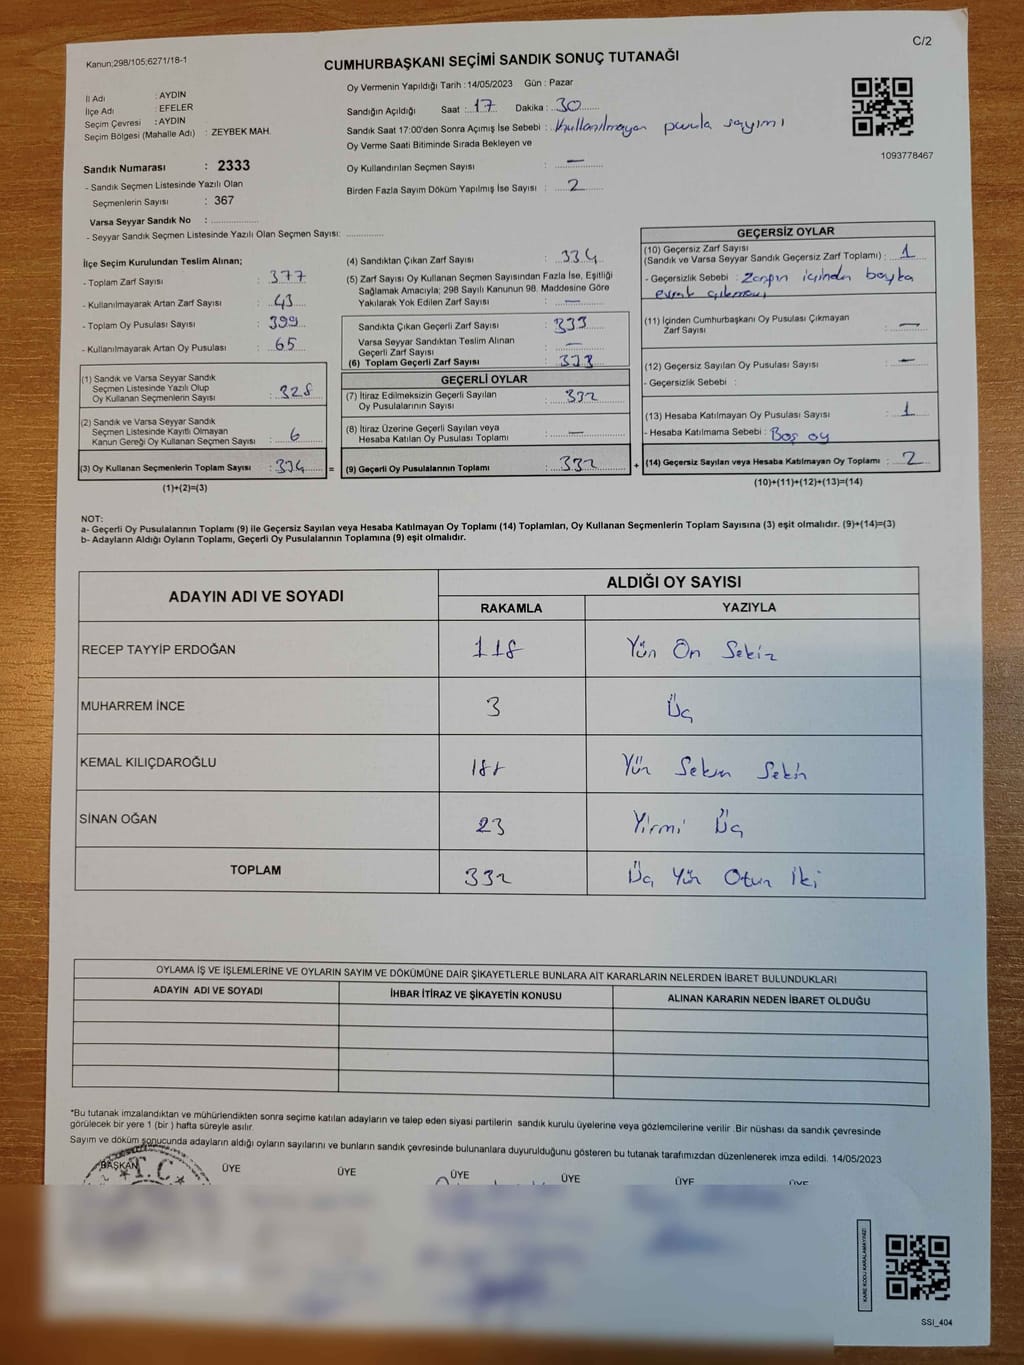 C/2
Kanun;298/105;6271/18-1
CUMHURBAŞKANI SEÇİMİ SANDIK SONUÇ TUTANAĞI
İl Adı : AYDIN
İlçe Adı : EFELER
Seçim Çevresi : AYDIN
Seçim Bölgesi (Mahalle Adı) : ZEYBEK MAH.
Sandık Numarası : 2333
- Sandık Seçmen Listesinde Yazılı Olan
Seçmenlerin Sayısı : 367
Varsa Seyyar Sandık No : ................
- Seyyar Sandık Seçmen Listesinde Yazılı Olan Seçmen Sayısı: .............
Oy Vermenin Yapıldığı Tarih : 14/05/2023 Gün : Pazar
Sandığın Açıldığı Saat : 17 Dakika : 30
Sandık Saat 17:00'den Sonra Açımış İse Sebebi : Kullanılmayan pusula sayımı
Oy Verme Saati Bitiminde Sırada Bekleyen ve
Oy Kullandırılan Seçmen Sayısı : —
Birden Fazla Sayım Döküm Yapılmış İse Sayısı : 2
1093778467
İlçe Seçim Kurulundan Teslim Alınan;
- Toplam Zarf Sayısı : 377
- Kullanılmayarak Artan Zarf Sayısı : 43
- Toplam Oy Pusulası Sayısı : 399
- Kullanılmayarak Artan Oy Pusulası : 65
(1) Sandık ve Varsa Seyyar Sandık
Seçmen Listesinde Yazılı Olup
Oy Kullanan Seçmenlerin Sayısı : 328
(2) Sandık ve Varsa Seyyar Sandık
Seçmen Listesinde Kayıtlı Olmayan
Kanun Gereği Oy Kullanan Seçmen Sayısı : 6
(3) Oy Kullanan Seçmenlerin Toplam Sayısı : 334 =
(1)+(2)=(3)
(4) Sandıktan Çıkan Zarf Sayısı : 334
(5) Zarf Sayısı Oy Kullanan Seçmen Sayısından Fazla İse, Eşitliği
Sağlamak Amacıyla; 298 Sayılı Kanunun 98. Maddesine Göre
Yakılarak Yok Edilen Zarf Sayısı : —
Sandıkta Çıkan Geçerli Zarf Sayısı : 333
Varsa Seyyar Sandıktan Teslim Alınan
Geçerli Zarf Sayısı : —
(6) Toplam Geçerli Zarf Sayısı : 333
GEÇERLİ OYLAR
(7) İtiraz Edilmeksizin Geçerli Sayılan
Oy Pusulalarının Sayısı : 332
(8) İtiraz Üzerine Geçerli Sayılan veya
Hesaba Katılan Oy Pusulası Toplamı : —
(9) Geçerli Oy Pusulalarının Toplamı : 332 +
GEÇERSİZ OYLAR
(10) Geçersiz Zarf Sayısı
(Sandık ve Varsa Seyyar Sandık Geçersiz Zarf Toplamı) : 1
- Geçersizlik Sebebi : Zarfın içinden başka
evrak çıkması
(11) İçinden Cumhurbaşkanı Oy Pusulası Çıkmayan
Zarf Sayısı : —
(12) Geçersiz Sayılan Oy Pusulası Sayısı : —
- Geçersizlik Sebebi :
(13) Hesaba Katılmayan Oy Pusulası Sayısı : 1
- Hesaba Katılmama Sebebi : Boş oy
(14) Geçersiz Sayılan veya Hesaba Katılmayan Oy Toplamı : 2
(10)+(11)+(12)+(13)=(14)
NOT:
a- Geçerli Oy Pusulalarının Toplamı (9) ile Geçersiz Sayılan veya Hesaba Katılmayan Oy Toplamı (14) Toplamları, Oy Kullanan Seçmenlerin Toplam Sayısına (3) eşit olmalıdır. (9)+(14)=(3)
b- Adayların Aldığı Oyların Toplamı, Geçerli Oy Pusulalarının Toplamına (9) eşit olmalıdır.
ADAYIN ADI VE SOYADI
ALDIĞI OY SAYISI
RAKAMLA YAZIYLA
RECEP TAYYİP ERDOĞAN 118 Yüz On Sekiz
MUHARREM İNCE 3 Üç
KEMAL KILIÇDAROĞLU 188 Yüz Seksen Sekiz
SİNAN OĞAN 23 Yirmi Üç
TOPLAM 332 Üç Yüz Otuz İki
OYLAMA İŞ VE İŞLEMLERİNE VE OYLARIN SAYIM VE DÖKÜMÜNE DAİR ŞİKAYETLERLE BUNLARA AİT KARARLARIN NELERDEN İBARET BULUNDUKLARI
ADAYIN ADI VE SOYADI İHBAR İTİRAZ VE ŞİKAYETİN KONUSU ALINAN KARARIN NEDEN İBARET OLDUĞU
*Bu tutanak imzalandıktan ve mühürlendikten sonra seçime katılan adayların ve talep eden siyasi partilerin sandık kurulu üyelerine veya gözlemcilerine verilir .Bir nüshası da sandık çevresinde
görülecek bir yere 1 (bir ) hafta süreyle asılır.
Sayım ve döküm sonucunda adayların aldığı oyların sayılarını ve bunların sandık çevresinde bulunanlara duyurulduğunu gösteren bu tutanak tarafımızdan düzenlenerek imza edildi. 14/05/2023
BAŞKAN ÜYE ÜYE ÜYE ÜYE ÜYE ÜYE
T.C.
KARE KODU KARALAMAYINIZ!
SSİ_404